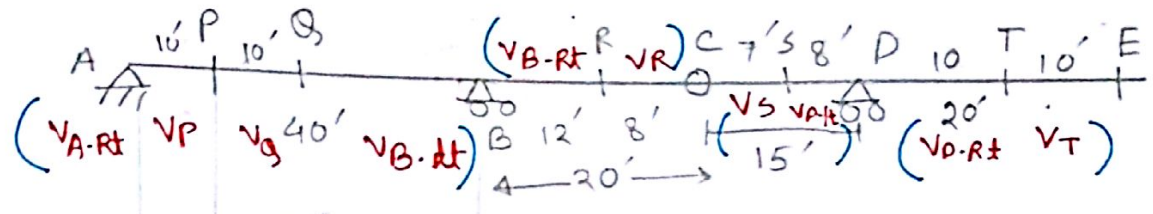 A 10' P 10' Q (V_B-Rt R V_R) C 7' S 8' D 10 T 10' E
(V_A-Rt V_P V_Q 40' V_B-lt) B 12' 8' (V_S V_D-lt) 20' (V_D-Rt V_T)
20' 15'